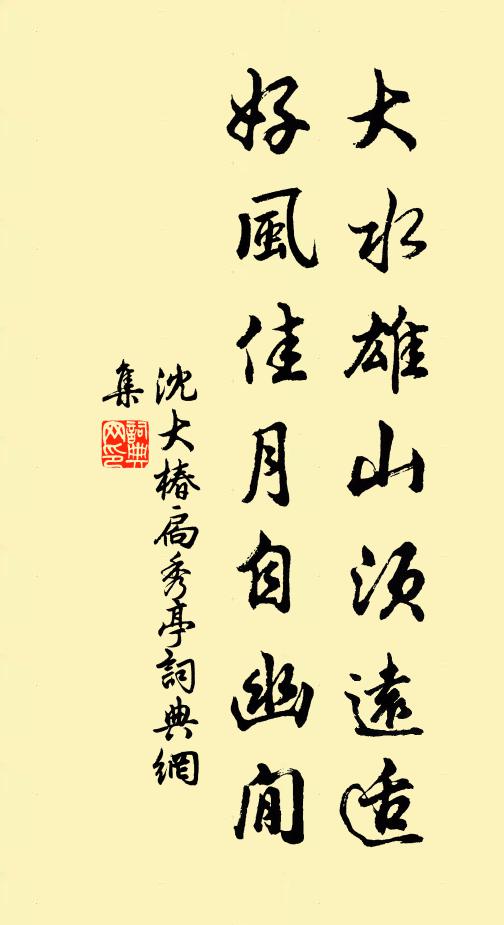 大水雄山須遠適
好風佳月自幽閒
沈大椿扁秀亭詞典網
集
詞典
网印